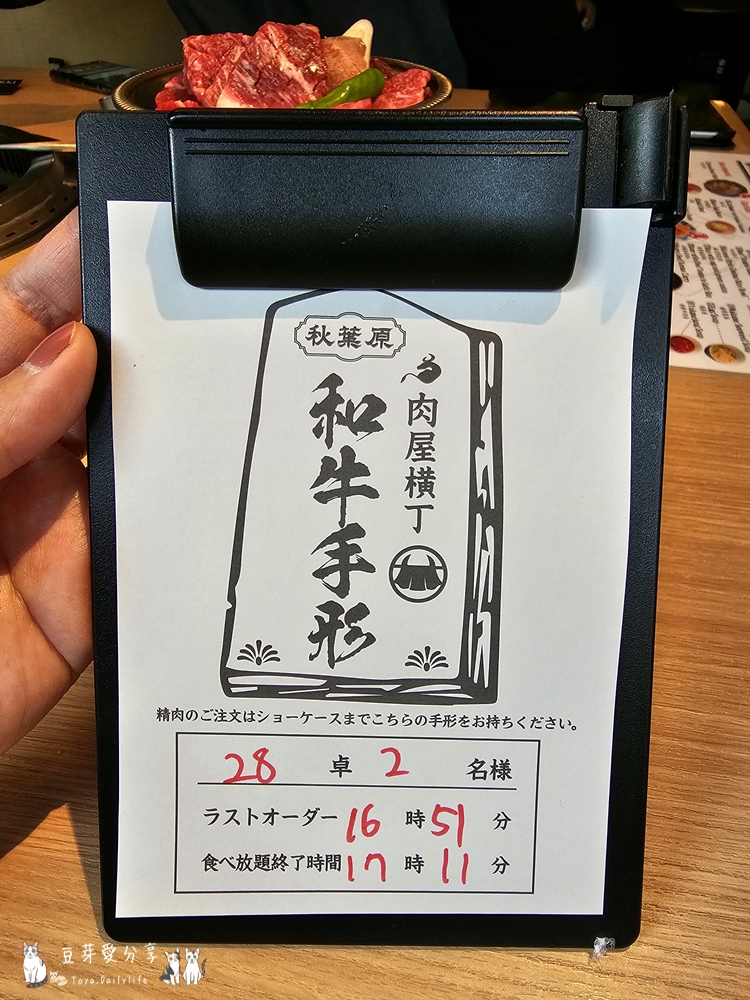 秋葉原
肉屋横丁
和牛手形
精肉のご注文はショーケースまでこちらの手形をお持ちください。
28 卓 2 名様
ラストオーダー 16 時 51 分
食べ放題終了時間 17 時 11 分
豆芽愛分享
Toya.Dailylife